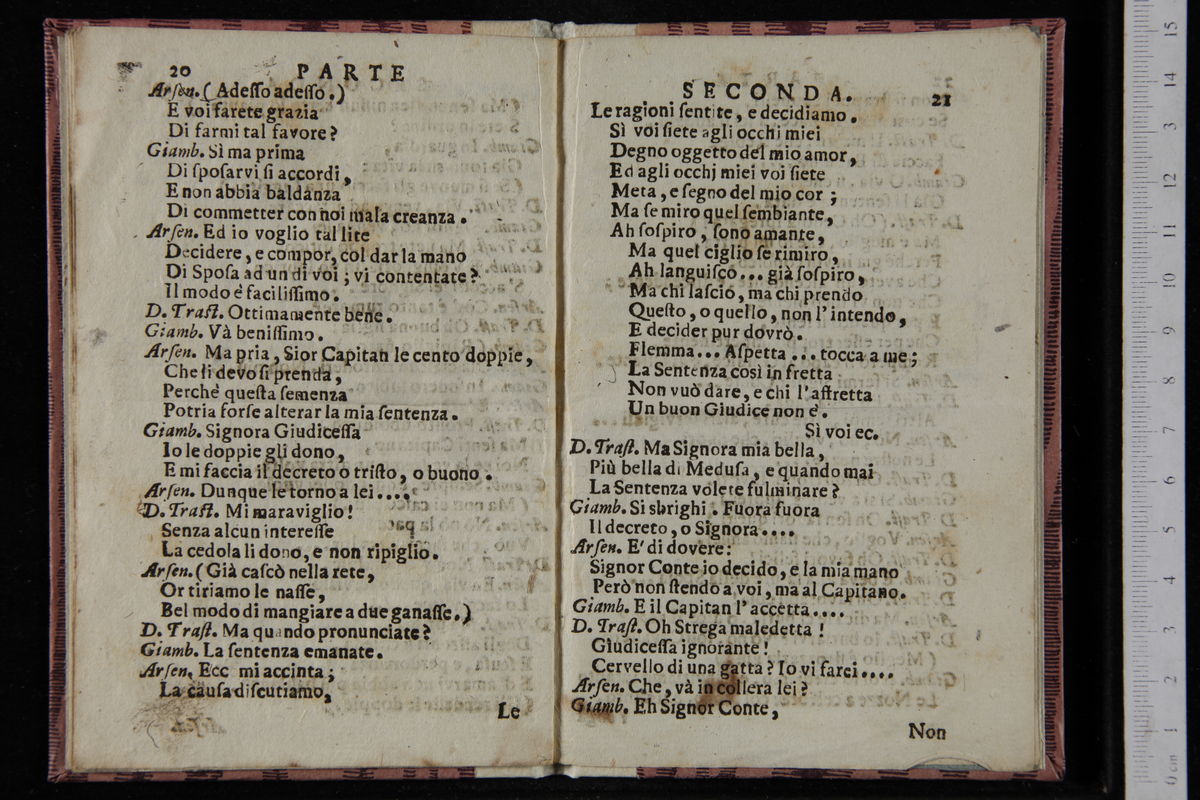 20 PARTE
Arsen. (Adesso adesso.)
E voi farete grazia
Di farmi tal favore?
Giamb. Sì ma prima
Di sposarvi si accordi,
E non abbia baldanza
Di commetter con noi mala creanza.
Arsen. Ed io voglio tal lite
Decidere, e compor, col dar la mano
Di Sposa ad un di voi; vi contentate?
Il modo è facilissimo.
D. Trast. Ottimamente bene.
Giamb. Và benissimo.
Arsen. Ma pria, Sior Capitan le cento doppie,
Che li devo si prenda,
Perchè questa semenza
Potria forse alterar la mia sentenza.
Giamb. Signora Giudicessa
Io le doppie gli dono,
E mi faccia il decreto o tristo, o buono.
Arsen. Dunque le torno a lei....
D. Trast. Mi maraviglio!
Senza alcun interesse
La cedola li dono, e non ripiglio.
Arsen. (Già cascò nella rete,
Or tiriamo le nasse,
Bel modo di mangiare a due ganasse.)
D. Trast. Ma quando pronunciate?
Giamb. La sentenza emanate.
Arsen. Ecc mi accinta;
La causa discutiamo,
Le
SECONDA. 21
Le ragioni sentite, e decidiamo.
Sì voi siete agli occhi miei
Degno oggetto del mio amor,
Ed agli occhj miei voi siete
Meta, e segno del mio cor;
Ma se miro quel sembiante,
Ah sospiro, sono amante,
Ma quel ciglio se rimiro,
Ah languisco... già sospiro,
Ma chi lascio, ma chi prendo
Questo, o quello, non l'intendo,
E decider pur dovrò.
Flemma... Aspetta... tocca a me;
La Sentenza così in fretta
Non vuò dare, e chi l'affretta
Un buon Giudice non è.
Sì voi ec.
D. Trast. Ma Signora mia bella,
Più bella di Medusa, e quando mai
La Sentenza volete fulminare?
Giamb. Si sbrighi. Fuora fuora
Il decreto, o Signora....
Arsen. E' di dovere:
Signor Conte io decido, e la mia mano
Però non stendo a voi, ma al Capitano.
Giamb. E il Capitan l'accetta....
D. Trast. Oh Strega maledetta!
Giudicessa ignorante!
Cervello di una gatta? Io vi farei....
Arsen. Che, và in collera lei?
Giamb. Eh Signor Conte,
Non